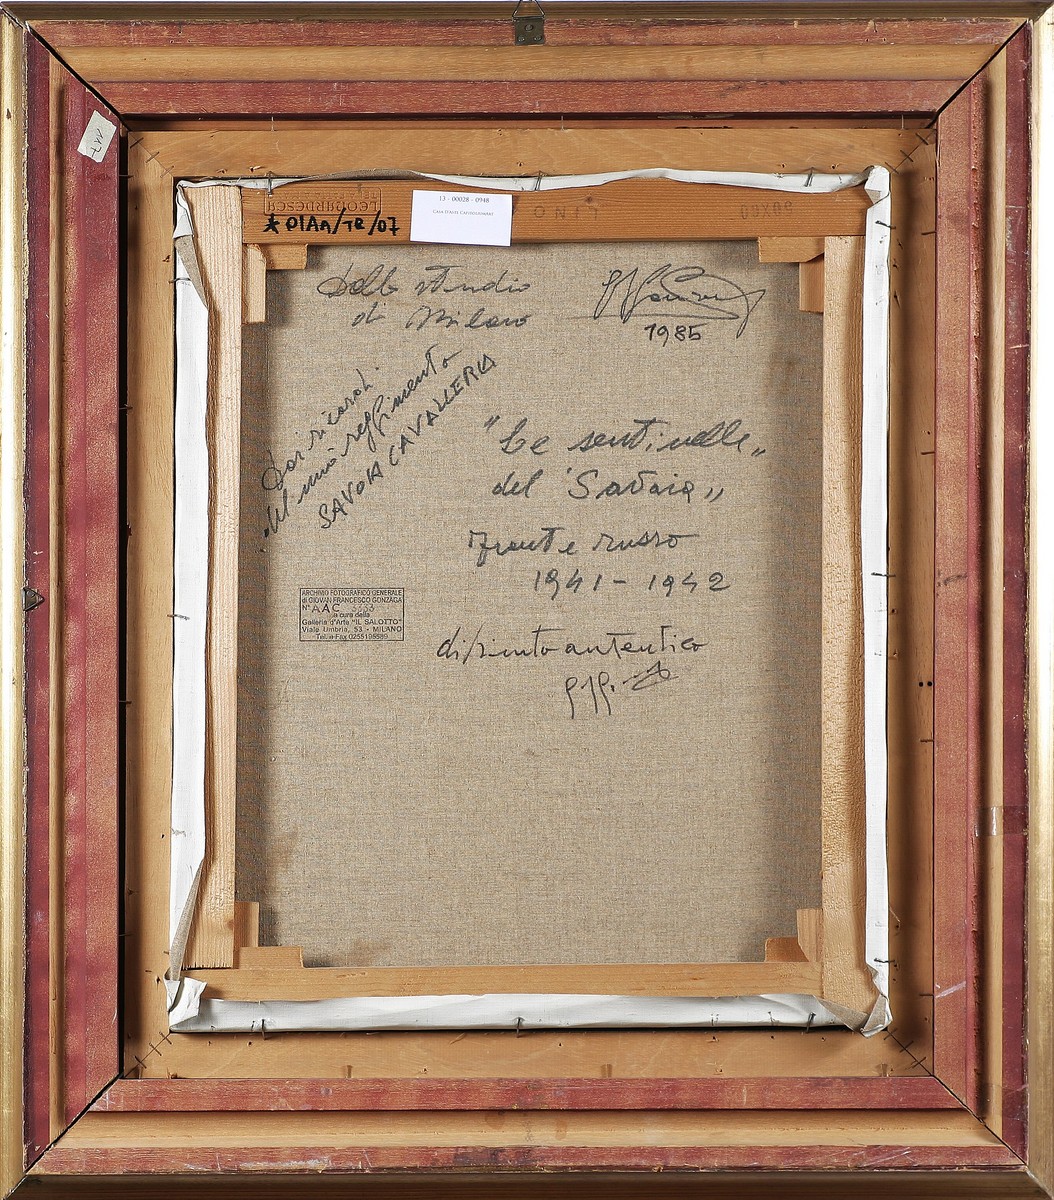 13 - 00028 - 0948
CASA D'ASTE CAPITOLIUMART
* PIAn/TR/07
LINO
50X60
Dallo studio
di Milano
1985
Dai ricordi
del mio reggimento
SAVOIA CAVALLERIA
"Le sentinelle„
del "Savoia„
Fronte russo
1941 - 1942
dipinto autentico
ARCHIVIO FOTOGRAFICO GENERALE
di GIOVAN FRANCESCO GONZAGA
N° AAC 3333
a cura della
Galleria d'Arte "IL SALOTTO"
Viale Umbria, 53 - MILANO
Tel. e Fax 0255195589